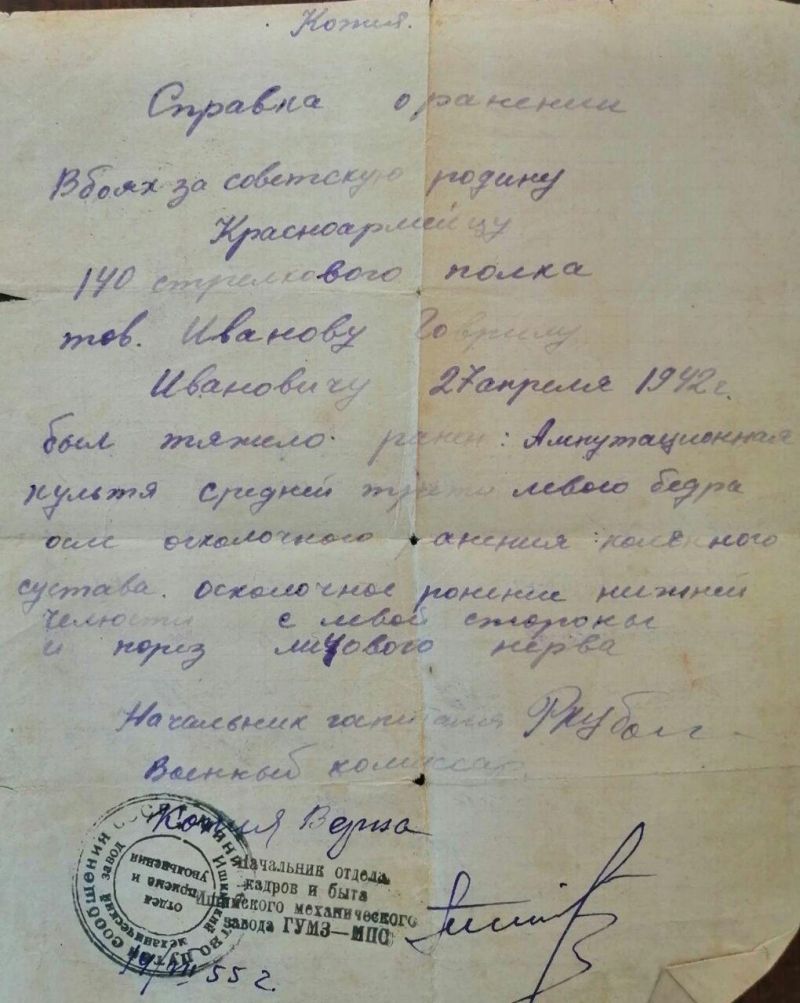 Копия.
Справка о ранении
В боях за советскую родину
Красноармейцу
140 стрелкового полка
тов. Иванову Гаврилу
Ивановичу 27 апреля 1942 г.
был тяжело ранен: Ампутационная
культя средней трети левого бедра
осле осколочного ранения коленного
сустава. осколочное ронение нижней
челюсти с левой стороны
и порез лицового нерва
Начальник госпиталя
Военный комиссар
Копия Верна
Начальник отдела
кадров и быта
Ишимского механического
завода ГУМЗ—МПС
СООБЩЕНИЯ СССР
Ишимский механический завод
отдел
приема и
увольнения
19/VII 55 г.